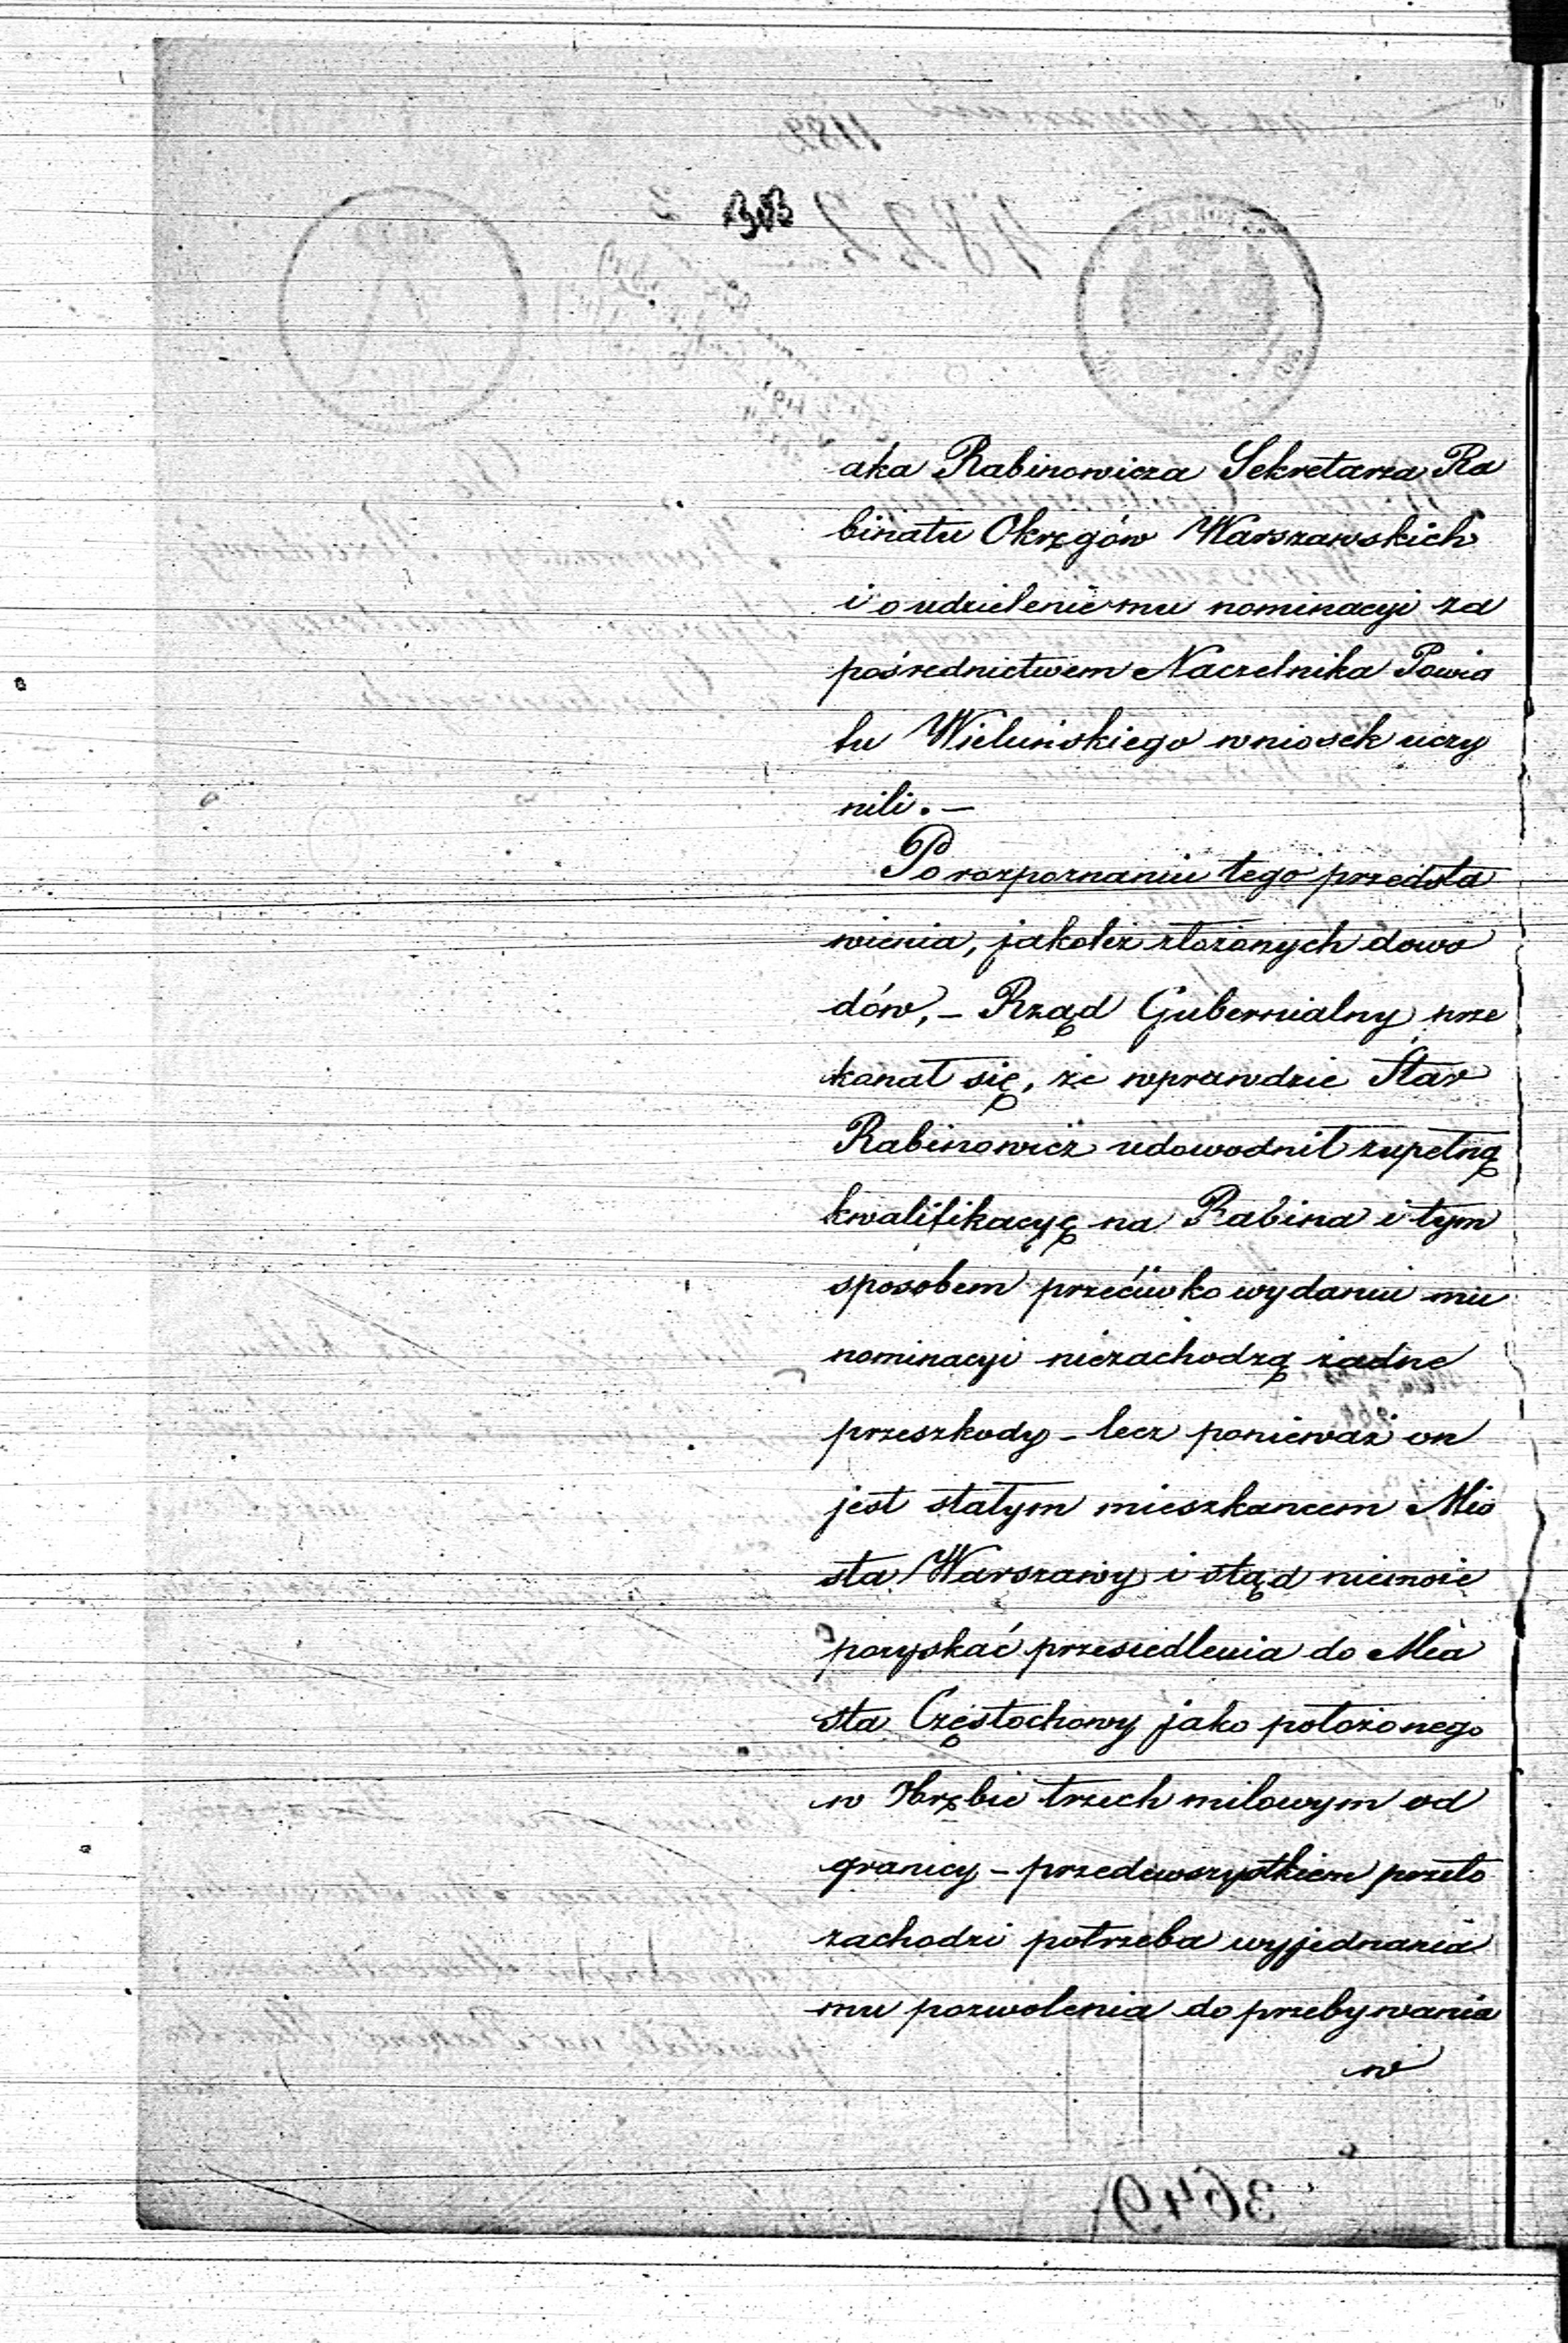 aka Rabinowicza Sekretarza Ra
binatu Okręgów Warszawskich
i o udzielenie mu nominacyi za
pośrednictwem Naczelnika Powia
tu Wieluńskiego wniosek uczy
nili. —
Po rozpoznaniu tego przedsta
wienia, jakoteż złożonych dowo
dów, — Rząd Gubernialny prze
konał się, że wprawdzie Star
Rabinowicz udowodnił zupełną
kwalifikacyę na Rabina i tym
sposobem przeciwko wydaniu mu
nominacyi niezachodzą żadne
przeszkody — lecz ponieważ on
jest stałym mieszkancem Mia
sta Warszawy i stąd niemoże
pozyskać przesiedlenia do Mia
sta Częstochowy jako położonego
w Obrębie trzech milowym od
granicy — przedewszystkiem przeto
zachodzi potrzeba wyjednania
mu pozwolenia do przebywania
w
3649